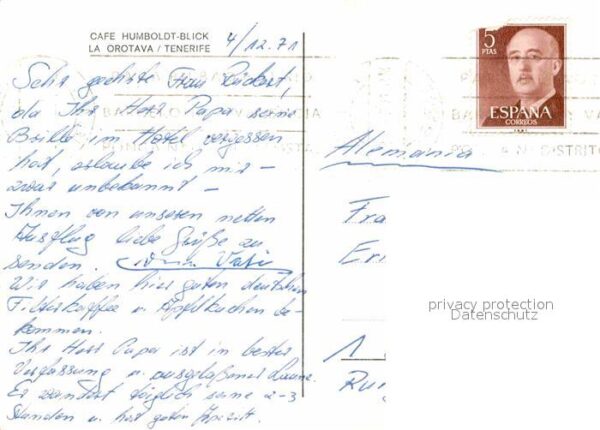 CAFE HUMBOLDT-BLICK
LA OROTAVA / TENERIFE
4/12.71
Sehr geehrte Frau Rückert,
da Ihr Herr Papa seine
Brille im Hotel vergessen
hat, erlaube ich mir –
zwar unbekannt –
Ihnen von unserem netten
Ausflug liebe Grüße zu
senden.
Wir haben hier guten deutschen
Filterkaffee u. Apfelkuchen be-
kommen.
Ihr Herr Papa ist in bester
Verfassung u. ausgelaßener Laune.
Er wandert täglich seine 2-3
Stunden u. hat guten Appetit.
5
PTAS
ESPAÑA
CORREOS
Alemania
Fra
Er
privacy protection
Datenschutz
1
Ru